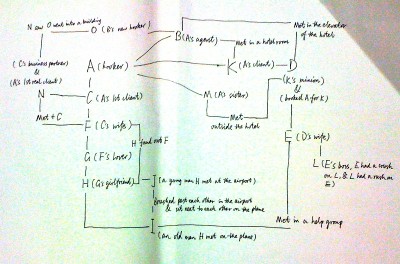 N saw O went into a building
O (B's new hooker)
Met in the elevator
of the hotel
B (A's agent)
Met in a hotel room
(C's business partner)
&
(A's 1st real client)
A (hooker)
K (A's client)
D
(K's minion)
&
(booked A for K)
N
C (A's 1st client)
M (A's sister)
Met + C
Met
outside the hotel
F (C's wife)
H found out F
E (D's wife)
G (F's lover)
L (E's boss, E had a crush
on L, & L had a crush on
E)
H (G's girlfriend)
J (a young man H met at the airport)
brushed past each other in the airport
& sit next to each other on the plane
Met in a help group
I (an old man H met on the plane)